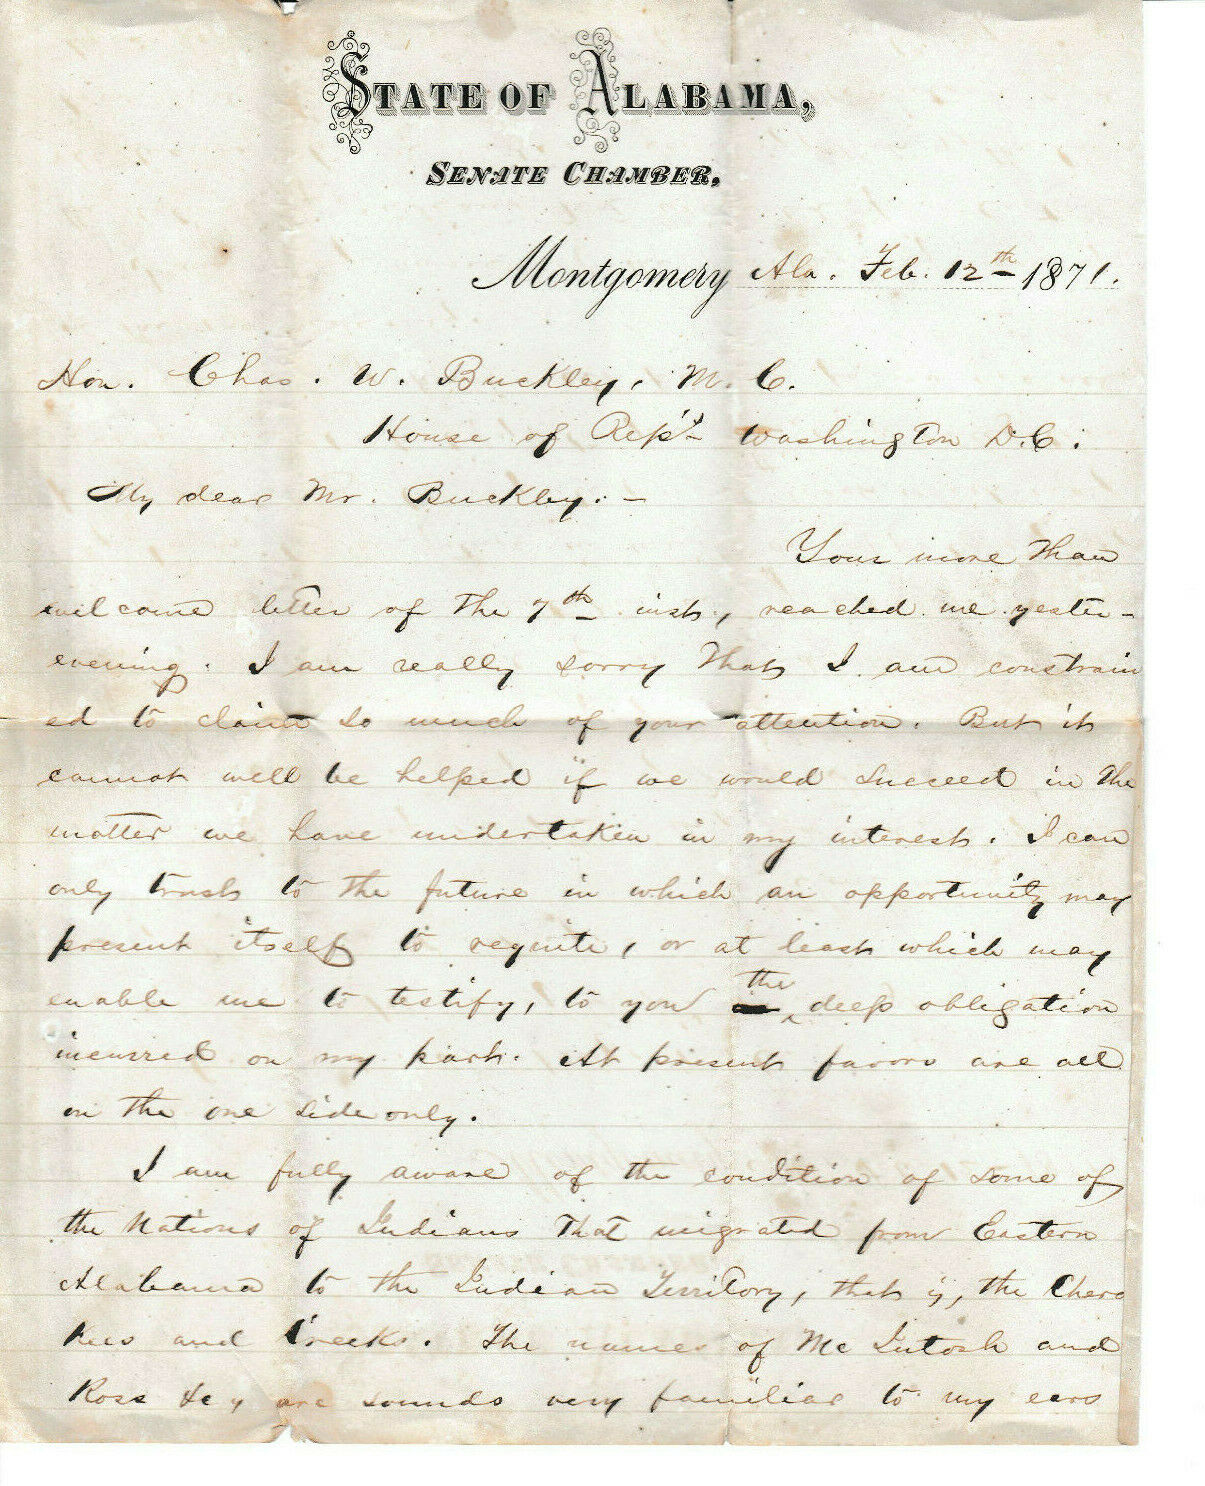 STATE OF ALABAMA,
SENATE CHAMBER,
Montgomery Ala. Feb. 12th 1871.
Hon. Chas. W. Buckley, M. C.
House of Rep's Washington D.C.
My dear Mr. Buckley:—
Your more than
welcome letter of the 7th inst., reached me yester-
evening. I am really sorry that I am constrain
ed to claim so much of your attention. But it
cannot well be helped if we would succeed in the
matter we have undertaken in my interest. I can
only trust to the future in which an opportunity may
present itself to requite, or at least which may
enable me to testify, to you the deep obligation
incurred on my part. At present favors are all
on the one side only.
I am fully aware of the condition of some of
the Nations of Indians that migrated from Eastern
Alabama to the Indian Territory, that is, the Chero
kees and Creeks. The names of McIntosh and
Ross &c are sounds very familiar to my ears